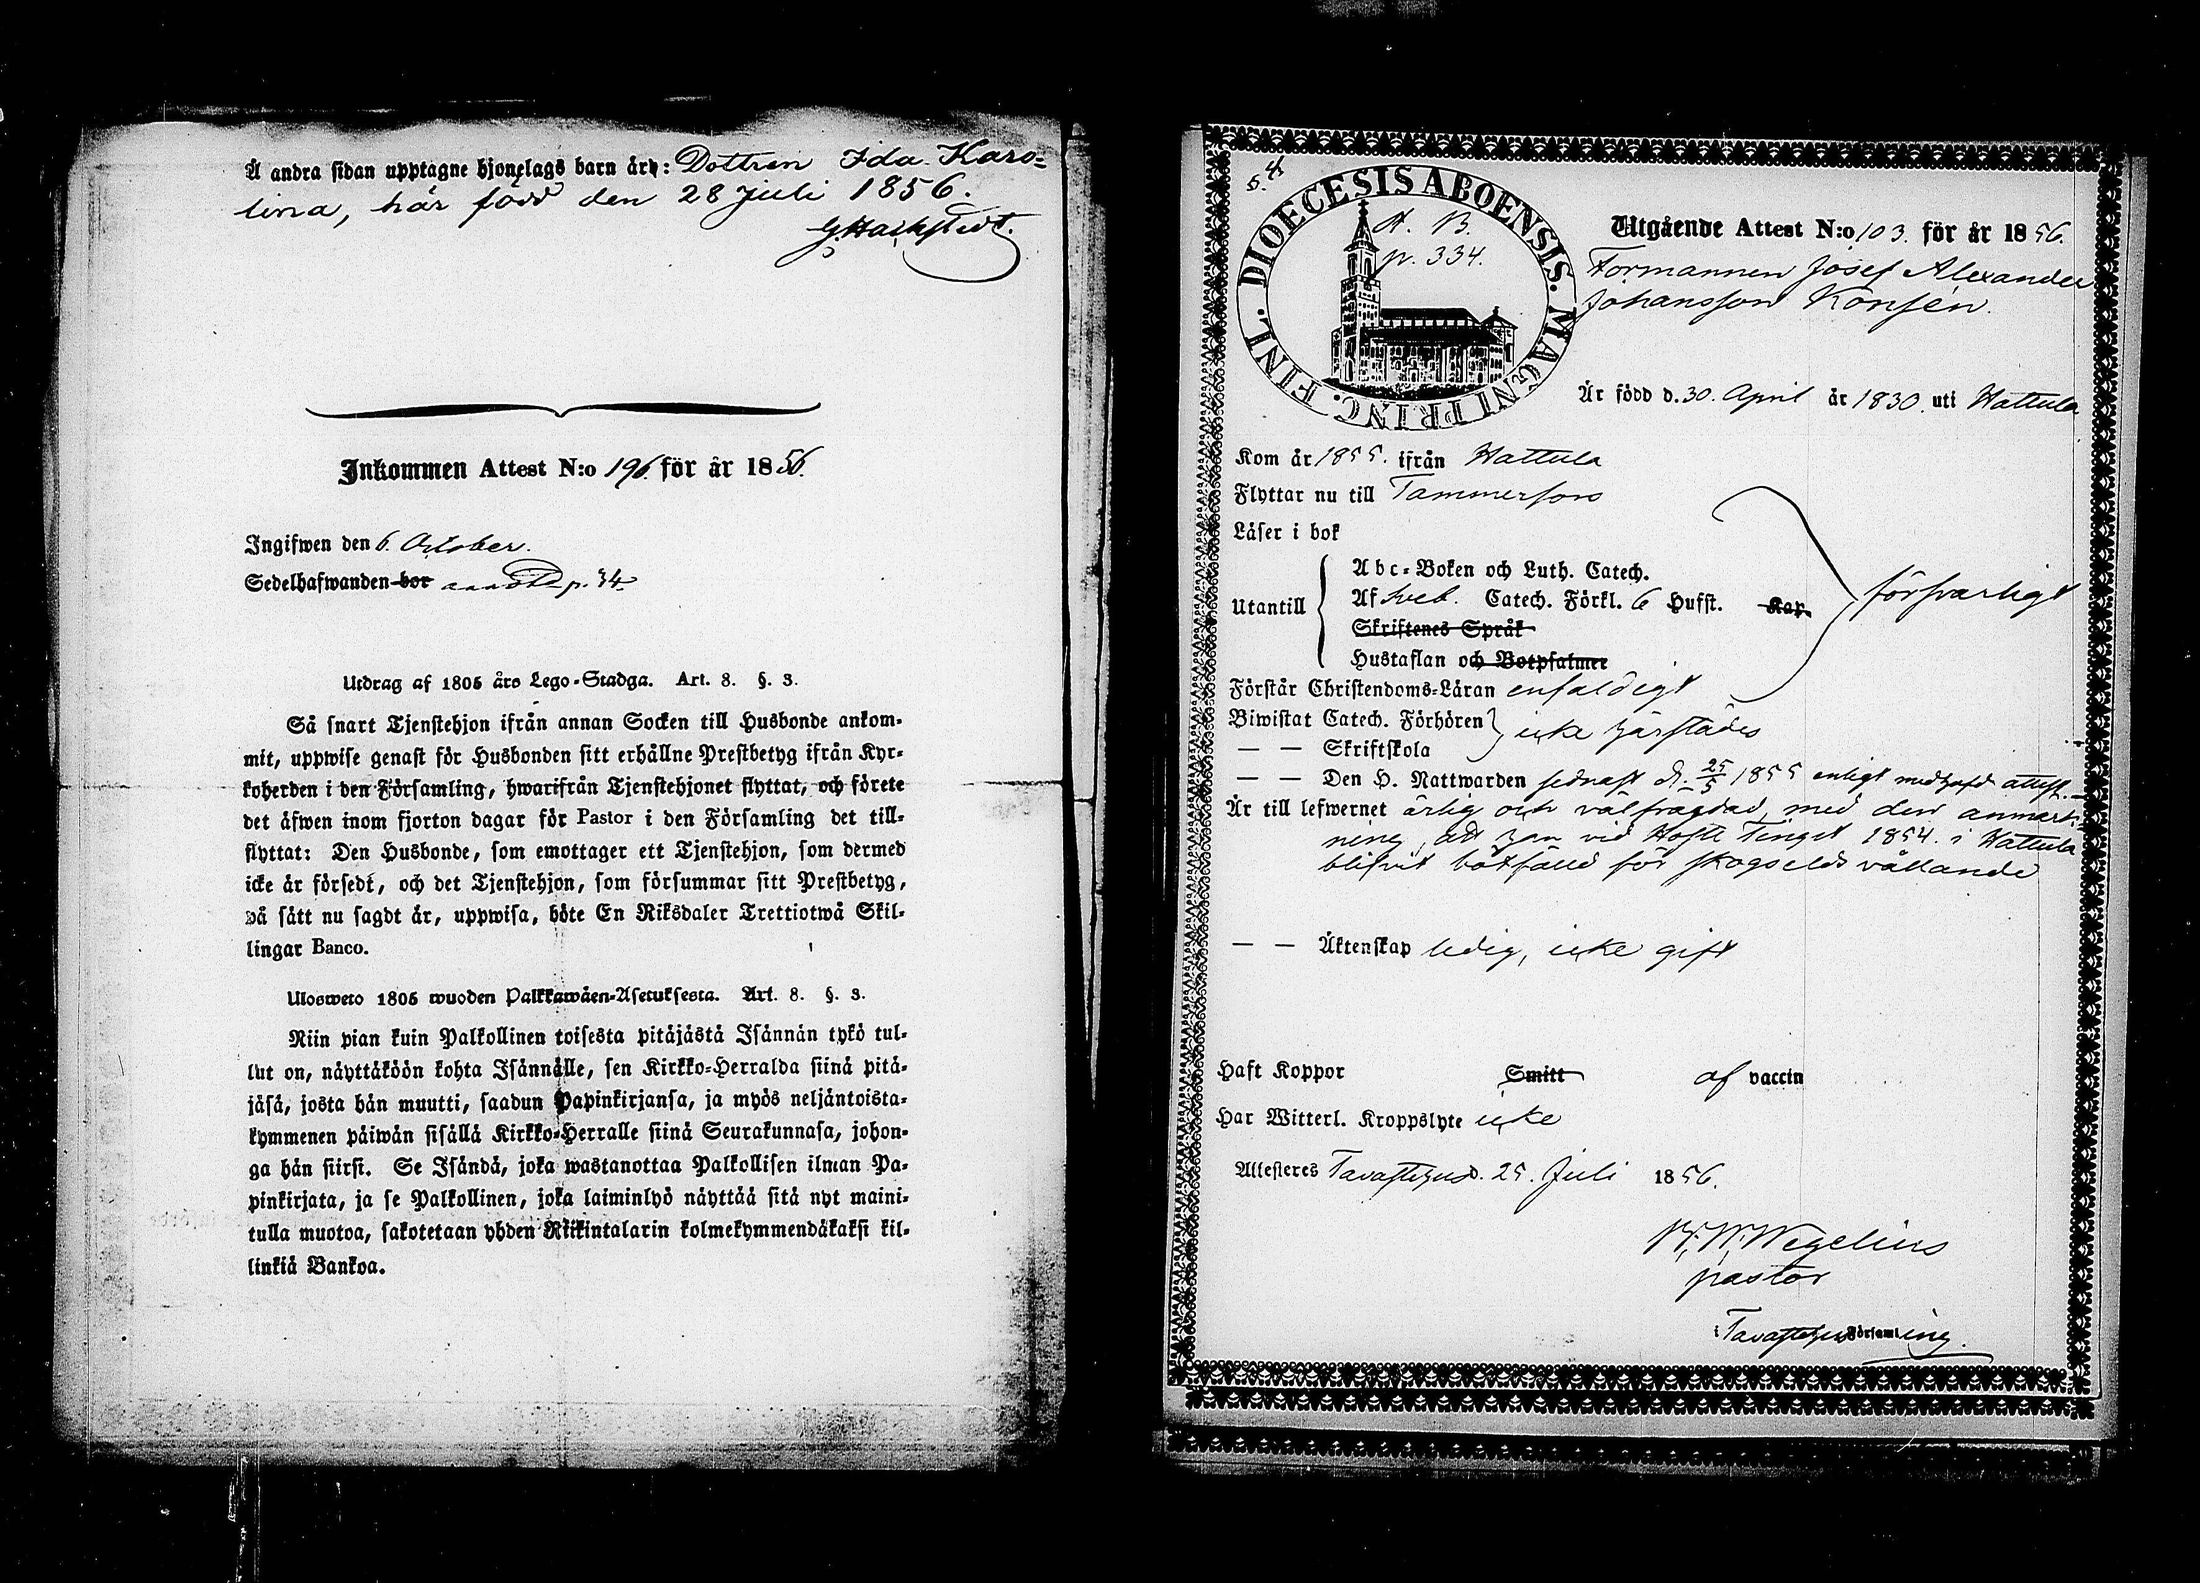 Å andra sidan upptagne hjonelags barn äro: Dottren Ida Karo-
lina, här född den 28 Juli 1856.
G. Hackstedt.
Inkommen Attest N:o 196. för år 1856.
Ingifwen den 6. October.
Sedelhafwanden bor p. 34
Utdrag af 1805 års Lego-Stadga. Art. 8. §. 3.
Så snart Tjenstehjon ifrån annan Socken till Husbonde ankom-
mit, uppwise genast för Husbonden sitt erhållne Prestbetyg ifrån Kyr-
koherden i den Församling, hwarifrån Tjenstehjonet flyttat, och förete
det äfwen inom fjorton dagar för Pastor i den Församling det till-
flyttat: Den Husbonde, som emottager ett Tjenstehjon, som dermed
icke är försedt, och det Tjenstehjon, som försummar sitt Prestbetyg,
på sätt nu sagdt är, uppwisa, böte En Riksdaler Trettiotwå Skil-
lingar Banco.
Ulosweto 1805 wuoden Palkkawäen-Asetuksesta. Art. 8. §. 3.
Niin pian kuin Palkollinen toisesta pitäjästä Isännän tykö tul-
lut on, näyttäköön kohta Isännälle, sen Kirkko-Herralda siinä pitä-
jäsä, josta hän muutti, saadun Papinkirjansa, ja myös neljäntoista-
kymmenen päiwän sisällä Kirkko-Herralle siinä Seurakunnasa, johon-
ga hän siirsi. Se Isändä, joka wastanottaa Palkollisen ilman Pa-
pinkirjata, ja se Palkollinen, joka laiminlyö näyttää sitä nyt maini-
tulla muotoa, sakotetaan yhden Riikintalarin kolmekymmendäkaksi kil-
linkiä Bankoa.
DIOECESIS ABOENSIS. MAGNI PRINC. FINL.
N. B.
p. 334.
Utgående Attest N:o 103. för år 1856.
Formannen Josef Alexander
Johansson Konsén.
Är född d. 30. April år 1830. uti Hattula
Kom år 1855. ifrån Hattula
Flyttar nu till Tammerfors
Läser i bok
Utantill
Abc-Boken och Luth. Catech.
Af Sveb. Catech. Förkl. 6 Hufst. Kap.
Skriftenes Språk
Hustaflan och Botpsalmer
försvarligt
Förstår Christendoms-Läran enfaldigt
Biwistat Catech. Förhören
— — Skriftskola
icke härstädes
— — Den H. Nattwarden sednast d. 25/5 1855 enligt medhafd attest.
Är till lefwernet ärlig och välfrägdad med den anmärk-
ning, att han vid Höste Tinget 1854. i Hattula
blifvit bötfälld för skogselds vållande
— — Äktenskap ledig, icke gift
Haft Koppor Smitt af vaccin
Har Witterl. Kroppslyte icke
Attesteres Tavastehus d. 25. Juli 1856.
Wegelius
pastor
i Tavastehus Församling.